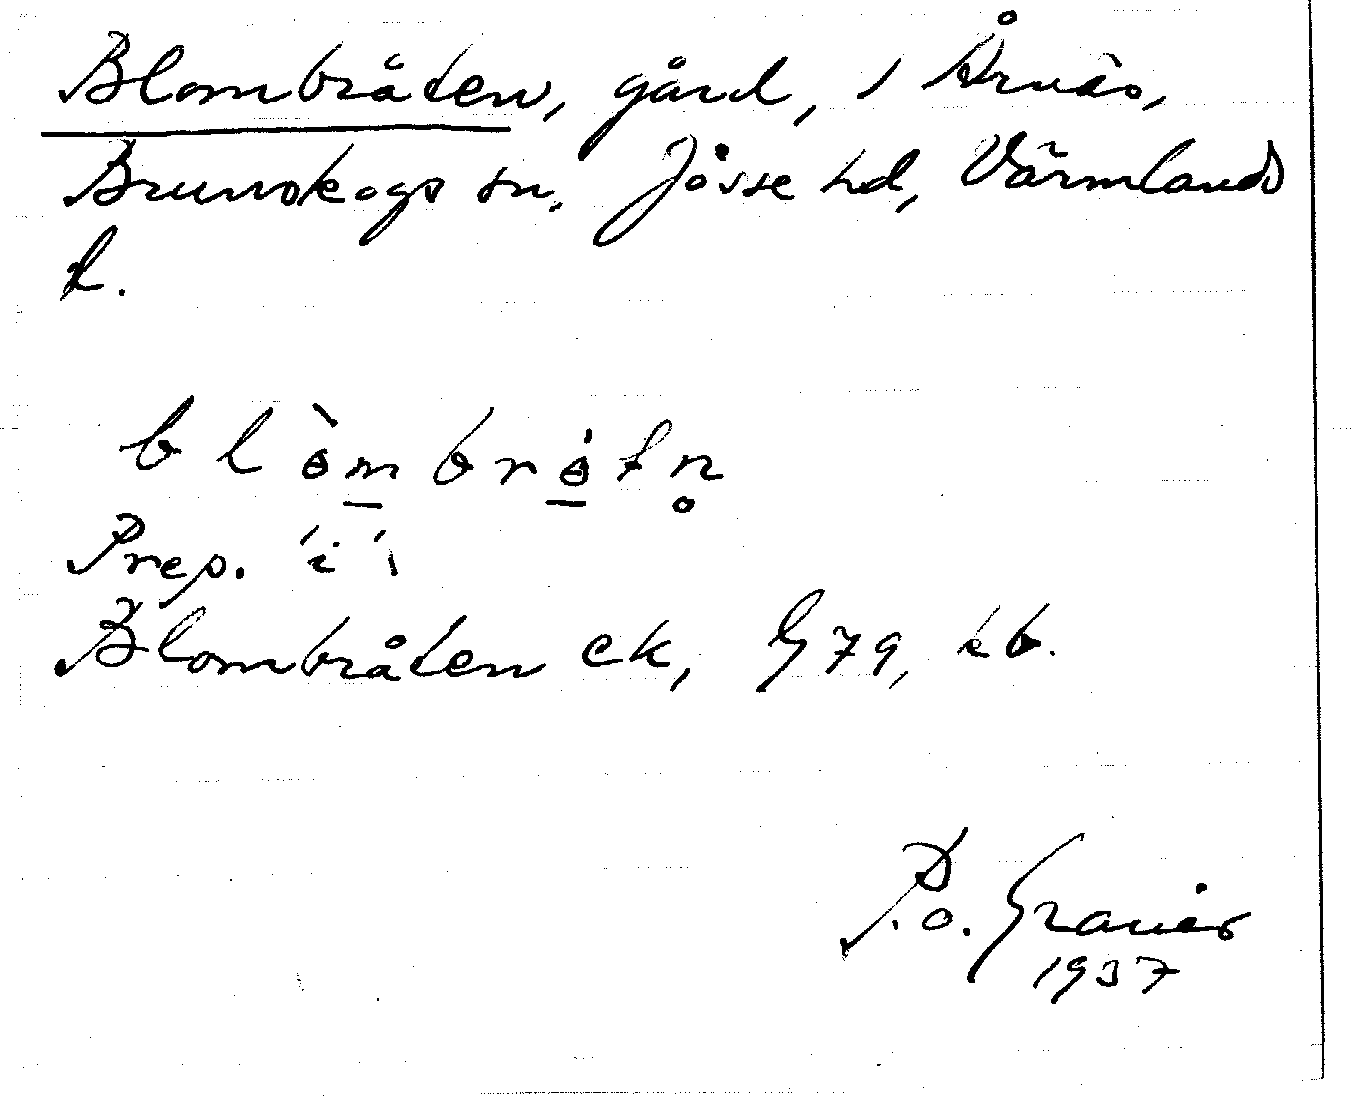 Blombråten, gård, i Årnäs,
Brunskogs sn, Jösse hd, Värmlands
l.
blòmbrótn̥
Prep. 'i'
Blombråten ek, G 79, kb.
P. o. Granér
1937